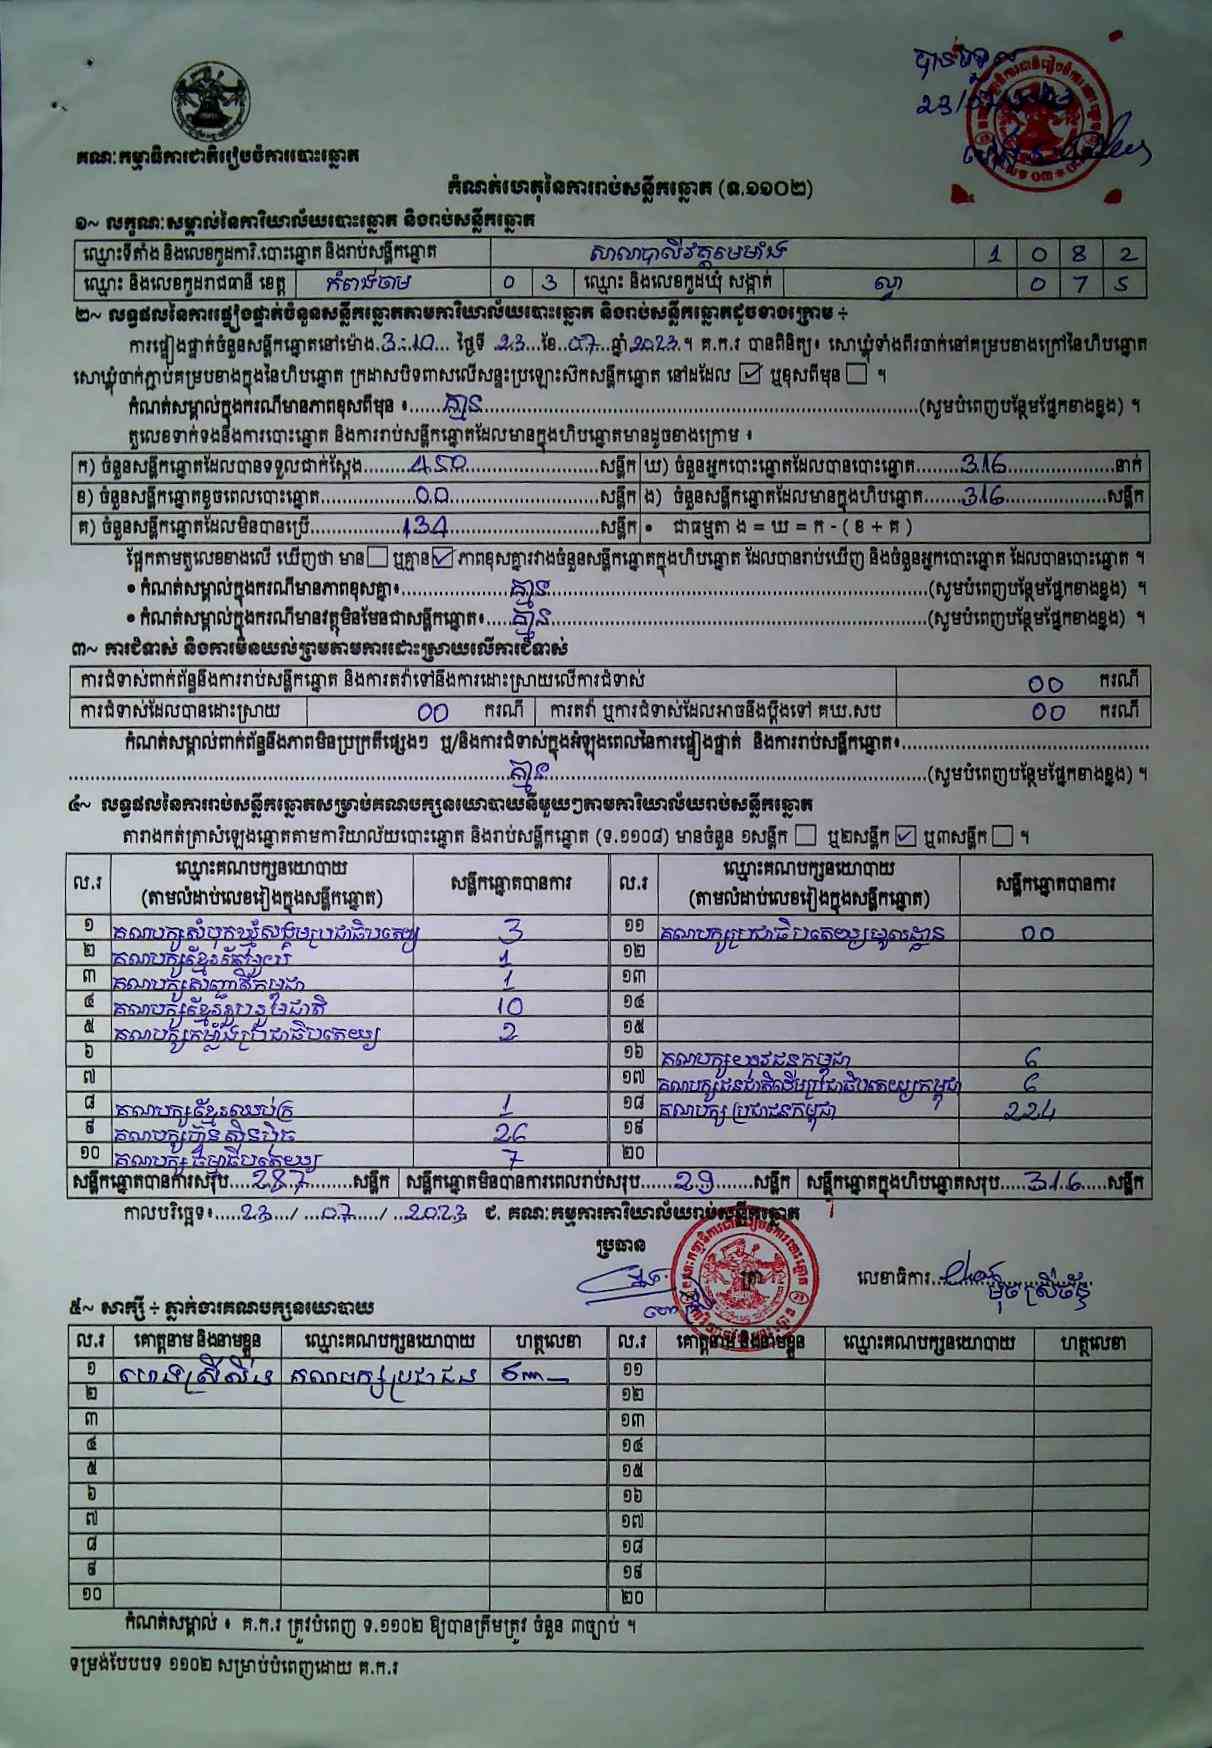 គណៈកម្មាធិការជាតិរៀបចំការបោះឆ្នោត
កំណត់ហេតុនៃការរាប់សន្លឹកឆ្នោត (ទ.១១០២)
១~ លក្ខណៈសម្គាល់នៃការិយាល័យបោះឆ្នោត និងរាប់សន្លឹកឆ្នោត
ឈ្មោះទីតាំង និងលេខកូដការិ.បោះឆ្នោត និងរាប់សន្លឹកឆ្នោត សាលាបាលីវត្តមេមាំង 1 0 8 2
ឈ្មោះ និងលេខកូដរាជធានី ខេត្ត កំពង់ចាម 0 3 ឈ្មោះ និងលេខកូដឃុំ សង្កាត់ ល្វា 0 7 5
២~ លទ្ធផលនៃការផ្ទៀងផ្ទាត់ចំនួនសន្លឹកឆ្នោតតាមការិយាល័យបោះឆ្នោត និងរាប់សន្លឹកឆ្នោតដូចខាងក្រោម ÷
ការផ្ទៀងផ្ទាត់ចំនួនសន្លឹកឆ្នោតនៅម៉ោង.3:10... ថ្ងៃទី .23...ខែ..07...ឆ្នាំ2023.។ គ.ក.រ បានពិនិត្យ៖ សោឃ្លុំទាំងពីរចាក់នៅគម្របខាងក្រៅនៃហិបឆ្នោត
សោឃ្លុំចាក់ភ្ជាប់គម្របខាងក្នុងនៃហិបឆ្នោត ក្រដាសបិទពាសលើសន្ទះប្រឡោះស៊កសន្លឹកឆ្នោត នៅដដែល ☑ ឬខុសពីមុន ☐ ។
កំណត់សម្គាល់ក្នុងករណីមានភាពខុសពីមុន ៖......គ្មាន......(សូមបំពេញបន្ថែមផ្នែកខាងខ្នង) ។
តួលេខទាក់ទងនឹងការបោះឆ្នោត និងការរាប់សន្លឹកឆ្នោតដែលមានក្នុងហិបឆ្នោតមានដូចខាងក្រោម ៖
ក) ចំនួនសន្លឹកឆ្នោតដែលបានទទួលជាក់ស្តែង......450......សន្លឹក ឃ) ចំនួនអ្នកបោះឆ្នោតដែលបានបោះឆ្នោត......316......នាក់
ខ) ចំនួនសន្លឹកឆ្នោតខូចពេលបោះឆ្នោត......00......សន្លឹក ង) ចំនួនសន្លឹកឆ្នោតដែលមានក្នុងហិបឆ្នោត......316......សន្លឹក
គ) ចំនួនសន្លឹកឆ្នោតដែលមិនបានប្រើ......134......សន្លឹក • ជាធម្មតា ង = ឃ = ក - ( ខ + គ )
ផ្អែកតាមតួលេខខាងលើ ឃើញថា មាន ☐ ឬគ្មាន ☑ ភាពខុសគ្នារវាងចំនួនសន្លឹកឆ្នោតក្នុងហិបឆ្នោត ដែលបានរាប់ឃើញ និងចំនួនអ្នកបោះឆ្នោត ដែលបានបោះឆ្នោត ។
• កំណត់សម្គាល់ក្នុងករណីមានភាពខុសគ្នា៖......គ្មាន......(សូមបំពេញបន្ថែមផ្នែកខាងខ្នង) ។
• កំណត់សម្គាល់ក្នុងករណីមានវត្ថុមិនមែនជាសន្លឹកឆ្នោត៖......គ្មាន......(សូមបំពេញបន្ថែមផ្នែកខាងខ្នង) ។
៣~ ការជំទាស់ និងការមិនយល់ព្រមតាមការដោះស្រាយលើការជំទាស់
ការជំទាស់ពាក់ព័ន្ធនឹងការរាប់សន្លឹកឆ្នោត និងការតវ៉ាទៅនឹងការដោះស្រាយលើការជំទាស់ 00 ករណី
ការជំទាស់ដែលបានដោះស្រាយ 00 ករណី ការតវ៉ា ឬការជំទាស់ដែលអាចនឹងប្តឹងទៅ គឃ.សប 00 ករណី
កំណត់សម្គាល់ពាក់ព័ន្ធនឹងភាពមិនប្រក្រតីផ្សេងៗ ឬ/និងការជំទាស់ក្នុងអំឡុងពេលនៃការផ្ទៀងផ្ទាត់ និងការរាប់សន្លឹកឆ្នោត៖......
......គ្មាន......(សូមបំពេញបន្ថែមផ្នែកខាងខ្នង) ។
៤~ លទ្ធផលនៃការរាប់សន្លឹកឆ្នោតសម្រាប់គណបក្សនយោបាយនីមួយៗតាមការិយាល័យរាប់សន្លឹកឆ្នោត
តារាងកត់ត្រាសំឡេងឆ្នោតតាមការិយាល័យបោះឆ្នោត និងរាប់សន្លឹកឆ្នោត (ទ.១១០៨) មានចំនួន ១សន្លឹក ☐ ឬ២សន្លឹក ☑ ឬ៣សន្លឹក ☐ ។
ល.រ ឈ្មោះគណបក្សនយោបាយ (តាមលំដាប់លេខរៀងក្នុងសន្លឹកឆ្នោត) សន្លឹកឆ្នោតបានការ ល.រ ឈ្មោះគណបក្សនយោបាយ (តាមលំដាប់លេខរៀងក្នុងសន្លឹកឆ្នោត) សន្លឹកឆ្នោតបានការ
១ គណបក្សសំបុកឃ្មុំសង្គមប្រជាធិបតេយ្យ 3 ១១ គណបក្សប្រជាធិបតេយ្យមូលដ្ឋាន 00
២ គណបក្សខ្មែររួបរួម 1 ១២
៣ គណបក្សសញ្ជាតិកម្ពុជា 1 ១៣
៤ គណបក្សខ្មែររួបរួមជាតិ 10 ១៤
៥ គណបក្សកម្លាំងប្រជាធិបតេយ្យ 2 ១៥
៦ ១៦ គណបក្សយុវជនកម្ពុជា 6
៧ ១៧ គណបក្សជនជាតិដើមប្រជាធិបតេយ្យកម្ពុជា 6
៨ គណបក្សខ្មែរឈប់ក្រ 1 ១៨ គណបក្សប្រជាជនកម្ពុជា 224
៩ គណបក្សហ៊្វុនស៊ិនប៉ិច 26 ១៩
១០ គណបក្សធម្មាធិបតេយ្យ 7 ២០
សន្លឹកឆ្នោតបានការសរុប....287......សន្លឹក សន្លឹកឆ្នោតមិនបានការពេលរាប់សរុប.....29......សន្លឹក សន្លឹកឆ្នោតក្នុងហិបឆ្នោតសរុប.....316.....សន្លឹក
កាលបរិច្ឆេទ៖.....23.../ ...07..../ ..2023 ជ. គណៈកម្មការការិយាល័យរាប់សន្លឹកឆ្នោត
ប្រធាន
ត្រា
លេខាធិការ......
ម៉ុច ស្រីច័ន្ទ
៥~ សាក្សី ÷ ភ្នាក់ងារគណបក្សនយោបាយ
ល.រ គោត្តនាម និងនាមខ្លួន ឈ្មោះគណបក្សនយោបាយ ហត្ថលេខា ល.រ គោត្តនាម និងនាមខ្លួន ឈ្មោះគណបក្សនយោបាយ ហត្ថលេខា
១ គណបក្សប្រជាជន ១១
២ ១២
៣ ១៣
៤ ១៤
៥ ១៥
៦ ១៦
៧ ១៧
៨ ១៨
៩ ១៩
១០ ២០
កំណត់សម្គាល់ ៖ គ.ក.រ ត្រូវបំពេញ ទ.១១០២ ឱ្យបានត្រឹមត្រូវ ចំនួន ៣ច្បាប់ ។
ទម្រង់បែបបទ ១១០២ សម្រាប់បំពេញដោយ គ.ក.រ